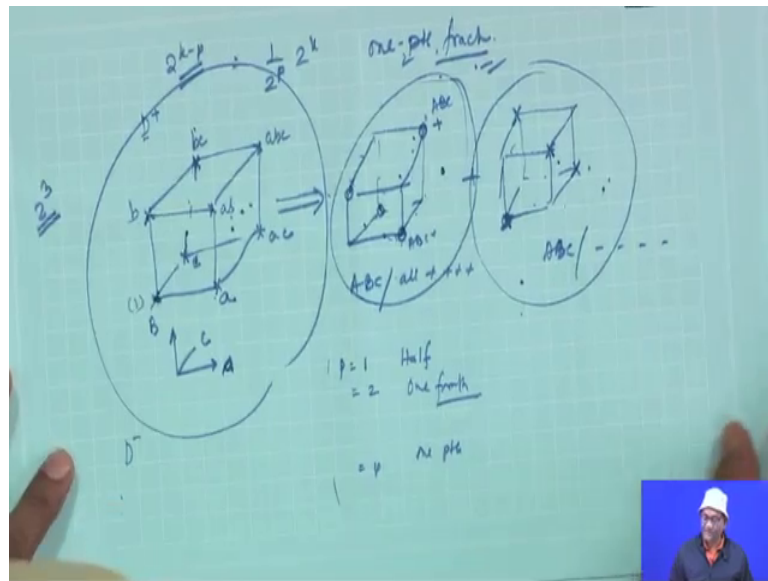 2^{k-p} : 1/2^p 2^k
one-pth fracn.
D+
2^3
bc
abc
b
ab
(1)
B
a
ac
A
D-
⇒
ABC
+
ABC+
ABC / all ++++
ABC / - - - -
p = 1 Half
= 2 One fourth
= p one pth